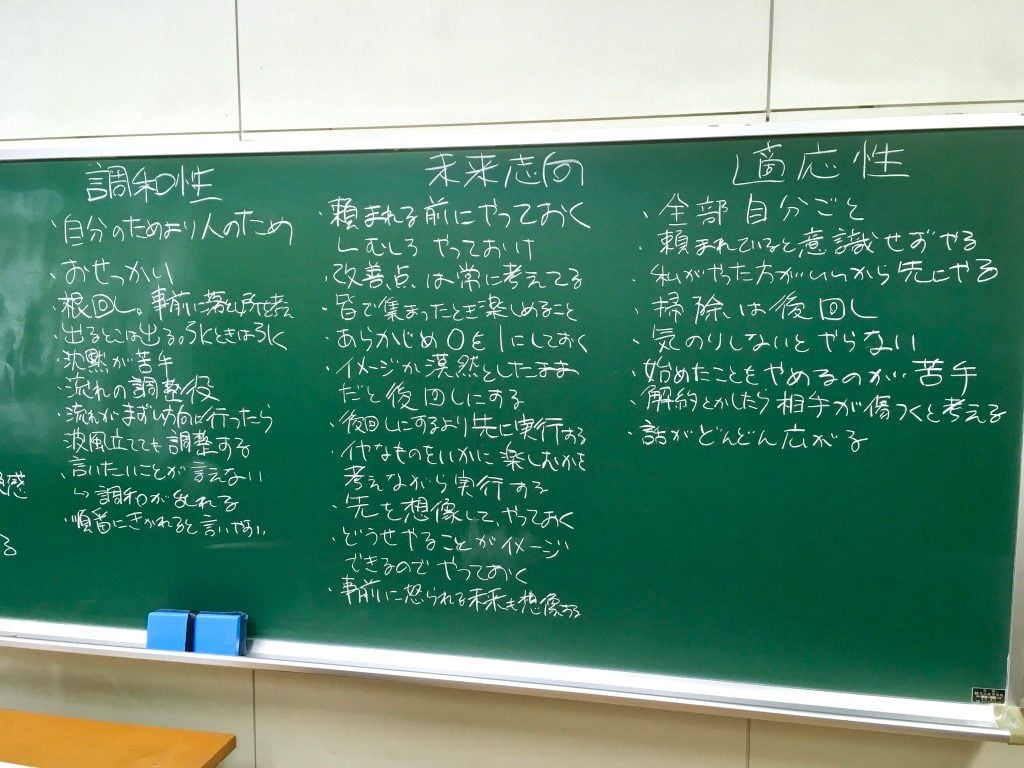 調和性
・自分のためより人のため
・おせっかい
・根回し。事前に落とし所を考え
・出るとこは出る。引くときは引く
・沈黙が苦手
・流れの調整役
・流れがまずい方向に行ったら
波風立てても調整する
・言いたいことが言えない
↳調和が乱れる
・順番にきかれると言いやすい
感
る
未来志向
・頼まれる前にやっておく
↳むしろやっておけ
・改善点は常に考えてる
・皆で集まったとき楽しめること
・あらかじめ0を1にしておく
・イメージが漠然としたまま
だと後回しにする
・後回しにするより先に実行する
・イヤなものをいかに楽しむかを
考えながら実行する
・先を想像して、やっておく
・どうせやることがイメージ
できるのでやっておく
・事前に怒られる未来も想像する
適応性
・全部自分ごと
・頼まれていると意識せずやる
・私がやった方がいいから先にやる
・掃除は後回し
・気のりしないとやらない
・始めたことをやめるのが苦手
・解約とかしたら相手が傷つくと考える
・話がどんどん広がる